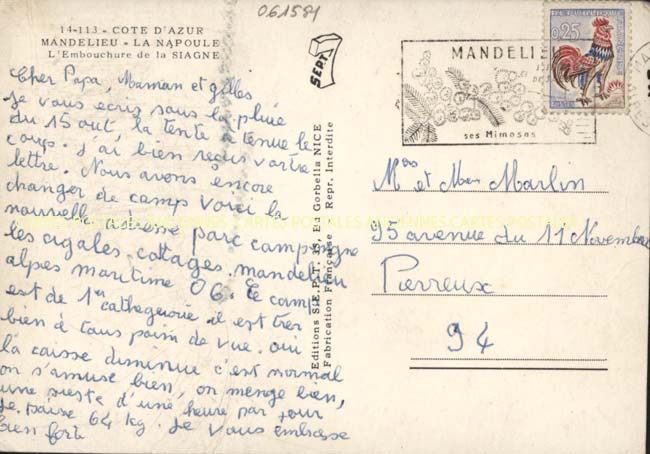 061581
14-113 - COTE D'AZUR
MANDELIEU - LA NAPOULE
L'Embouchure de la SIAGNE
Cher Papa, Maman et gilles
je vous ecris sous la pluie
du 15 out, la tente a tenue le
coups. J'ai bien reçus votre
lettre. Nous avons encore
changer de camps voici la
nouvelle adresse parc camping
les cigales. cottages. mandelieu
alpes maritime 06. le camp
est de 1er cathegorie il est tres
bien à tous poim de vue. oui
la caisse diminue c'est normal
on s'amuse bien, on mange bien,
une sieste d'une heure par jour
je paise 64 kg. je vous embrasse
bien fort
SEPT
Editions S.E.P.T. 15, Bd Gorbella NICE
Fabrication Française Repr. Interdite
MANDELIEU
ses Mimosas
0,25
Mr et Mme Marlin
95 avenue du 11 Novembre
Perreux
94
CARTES POSTALES ANCIENNES CARTES POSTALES